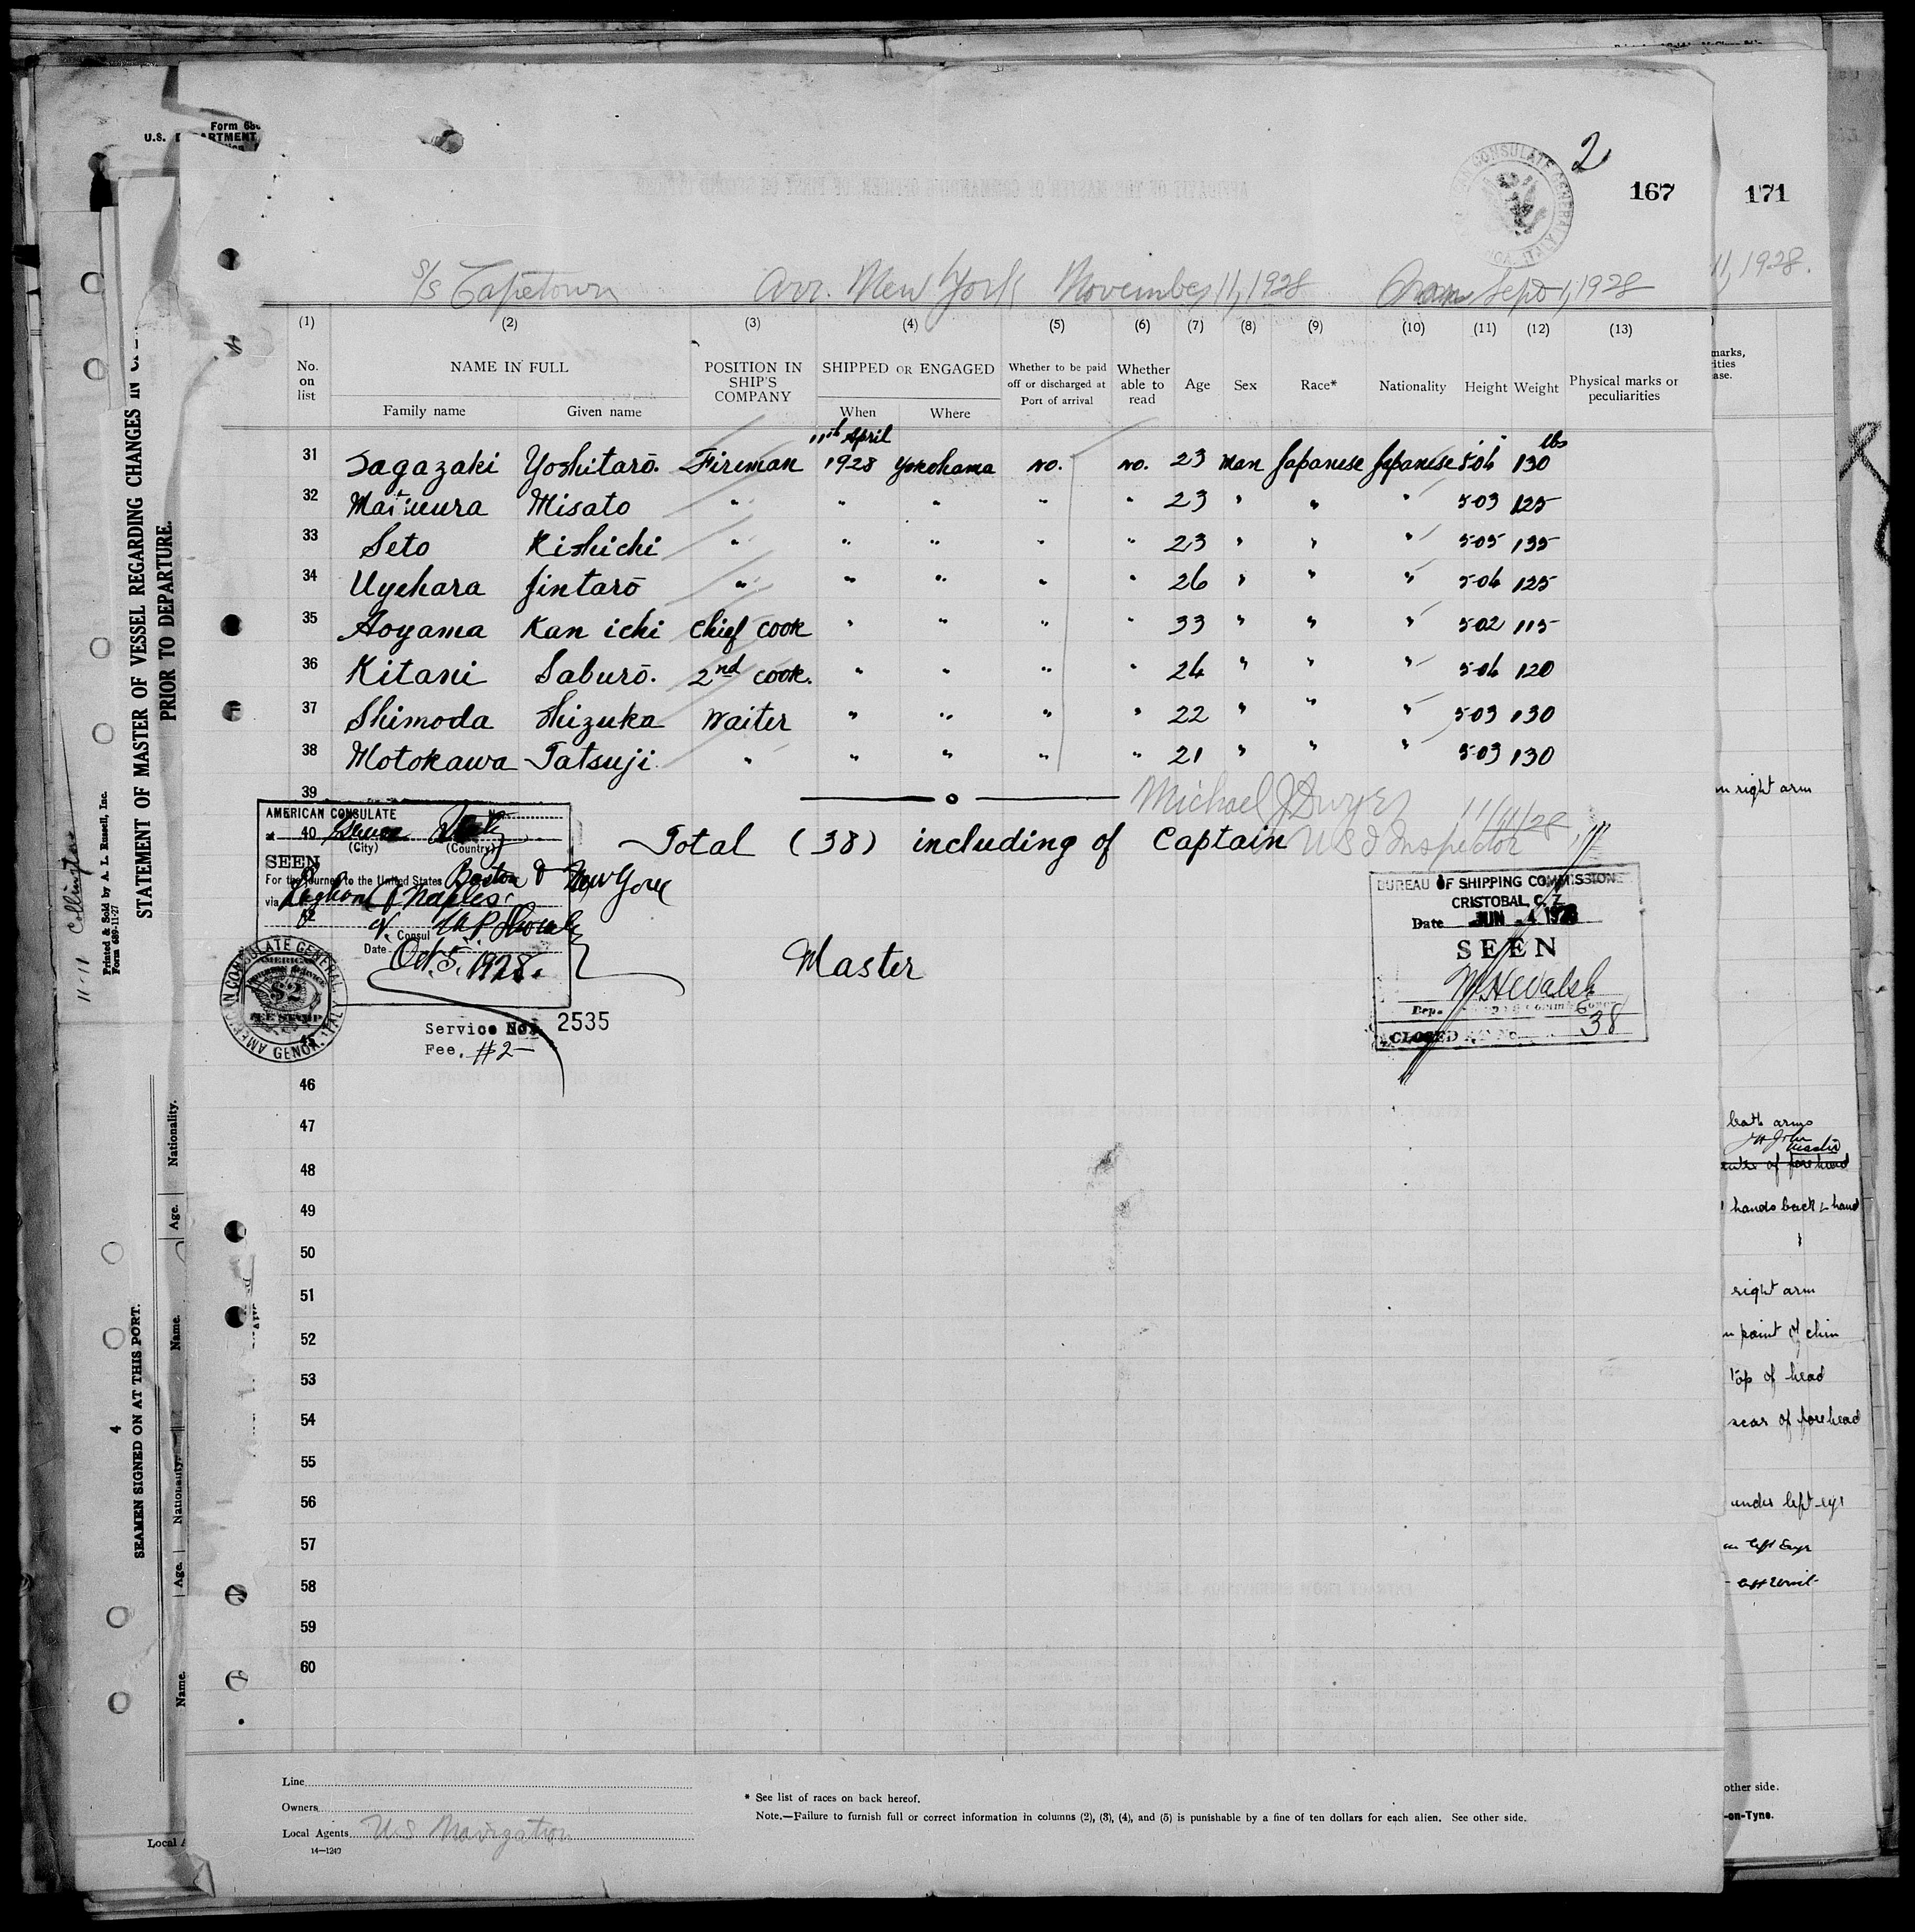 Form 680
U.S. DEPARTMENT
2
167
171
AMERICAN CONSULATE GENERAL
S/S Capetown Arr. New York November 11, 1928 Sept 1, 1928
11, 1928.
(1) (2) (3) (4) (5) (6) (7) (8) (9) (10) (11) (12) (13)
No. on list
NAME IN FULL
Family name Given name
POSITION IN SHIP'S COMPANY
SHIPPED OR ENGAGED
When Where
Whether to be paid off or discharged at Port of arrival
Whether able to read
Age Sex Race* Nationality Height Weight
Physical marks or peculiarities
11th April lbs
31 Sagazaki Yoshitarō. Fireman 1928 Yokohama No. No. 23 Man Japanese Japanese 5-04 130
32 Misato " " " " " 23 " " " 5-03 125
33 Seto Kishichi " " " " " 23 " " " 5-05 135
34 Uyehara Jintarō " " " " " 26 " " " 5-04 125
35 Aoyama Kan ichi Chief cook " " " " 33 " " " 5-02 115
36 Kitani Saburō. 2nd cook. " " " " 24 " " " 5-04 120
37 Shimoda Shizuka Waiter " " " " 22 " " " 5-03 130
38 Motokawa Tatsuji " " " " " 21 " " " 5-03 130
39
Michael J Dwyer 11/11/28
U S I Inspector
Total (38) including of Captain
Master
AMERICAN CONSULATE No.
at 40 Genoa Italy
(City) (Country)
SEEN
For the journey to the United States Boston & New York
via Leghorn & Naples
42
V. Consul
Date Oct. 5. 1928.
AMERICAN CONSULATE GENERAL GENOA, ITALY
AMERICAN
$2
FEE STAMP
45
Service No. 2535
Fee. #2-
BUREAU OF SHIPPING COMMISSION
CRISTOBAL, C. Z.
Date JUN -4 1928
SEEN
M H Walsh
Dep. Shipping Commissioner
CLOSED
38
46
47
48
49
50
51
52
53
54
55
56
57
58
59
60
Line
Owners
Local Agents U.S Navigation
14—1240
* See list of races on back hereof.
Note.—Failure to furnish full or correct information in columns (2), (3), (4), and (5) is punishable by a fine of ten dollars for each alien. See other side.
STATEMENT OF MASTER OF VESSEL REGARDING CHANGES IN
PRIOR TO DEPARTURE.
Printed & Sold by A. L. Russell, Inc.
Form 689-11-27
11-11 Collington
4
SEAMEN SIGNED ON AT THIS PORT.
Name. Age. Nationality. Name. Age. Nationality.
Local A
marks,
ities
ase.
right arm
both arms
of forehead
hands back & hand
right arm
point of chin
top of head
scar of forehead
under left eye
other side.
-on-Tyne.